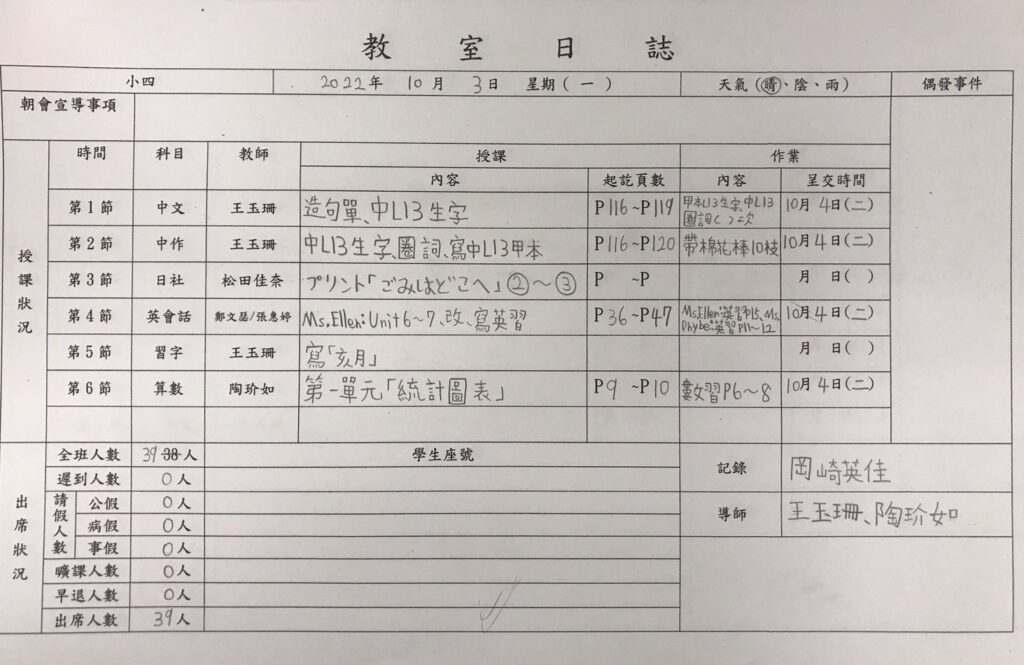 教室日誌
小四 2022年 10月 3日 星期(一) 天氣(晴、陰、雨) 偶發事件
朝會宣導事項
授課狀況
時間 科目 教師 授課 作業
內容 起訖頁數 內容 呈交時間
第1節 中文 王玉珊 造句單、中L13生字 P116~P119 甲本L13生字、中L13圈詞( )二次 10月4日(二)
第2節 中作 王玉珊 中L13生字、圈詞、寫中L13甲本 P116~P120 帶棉花棒10枝 10月4日(二)
第3節 日社 松田佳奈 プリント「ごみはどこへ」②～③ P ~P 月 日( )
第4節 英會話 鄭文瑟/張惠婷 Ms.Ellen:Unit6~7、改、寫英習 P36~P47 Ms.Ellen:英習P15、Ms.Phybe:英習P11~12 10月4日(二)
第5節 習字 王玉珊 寫「亥月」 月 日( )
第6節 算數 陶玠如 第一單元「統計圖表」 P9~P10 數習P6~8 10月4日(二)
出席狀況
全班人數 39 38人 學生座號 記錄 岡崎英佳
遲到人數 0人
請假人數 公假 0人 導師 王玉珊、陶玠如
病假 0人
事假 0人
曠課人數 0人
早退人數 0人
出席人數 39人